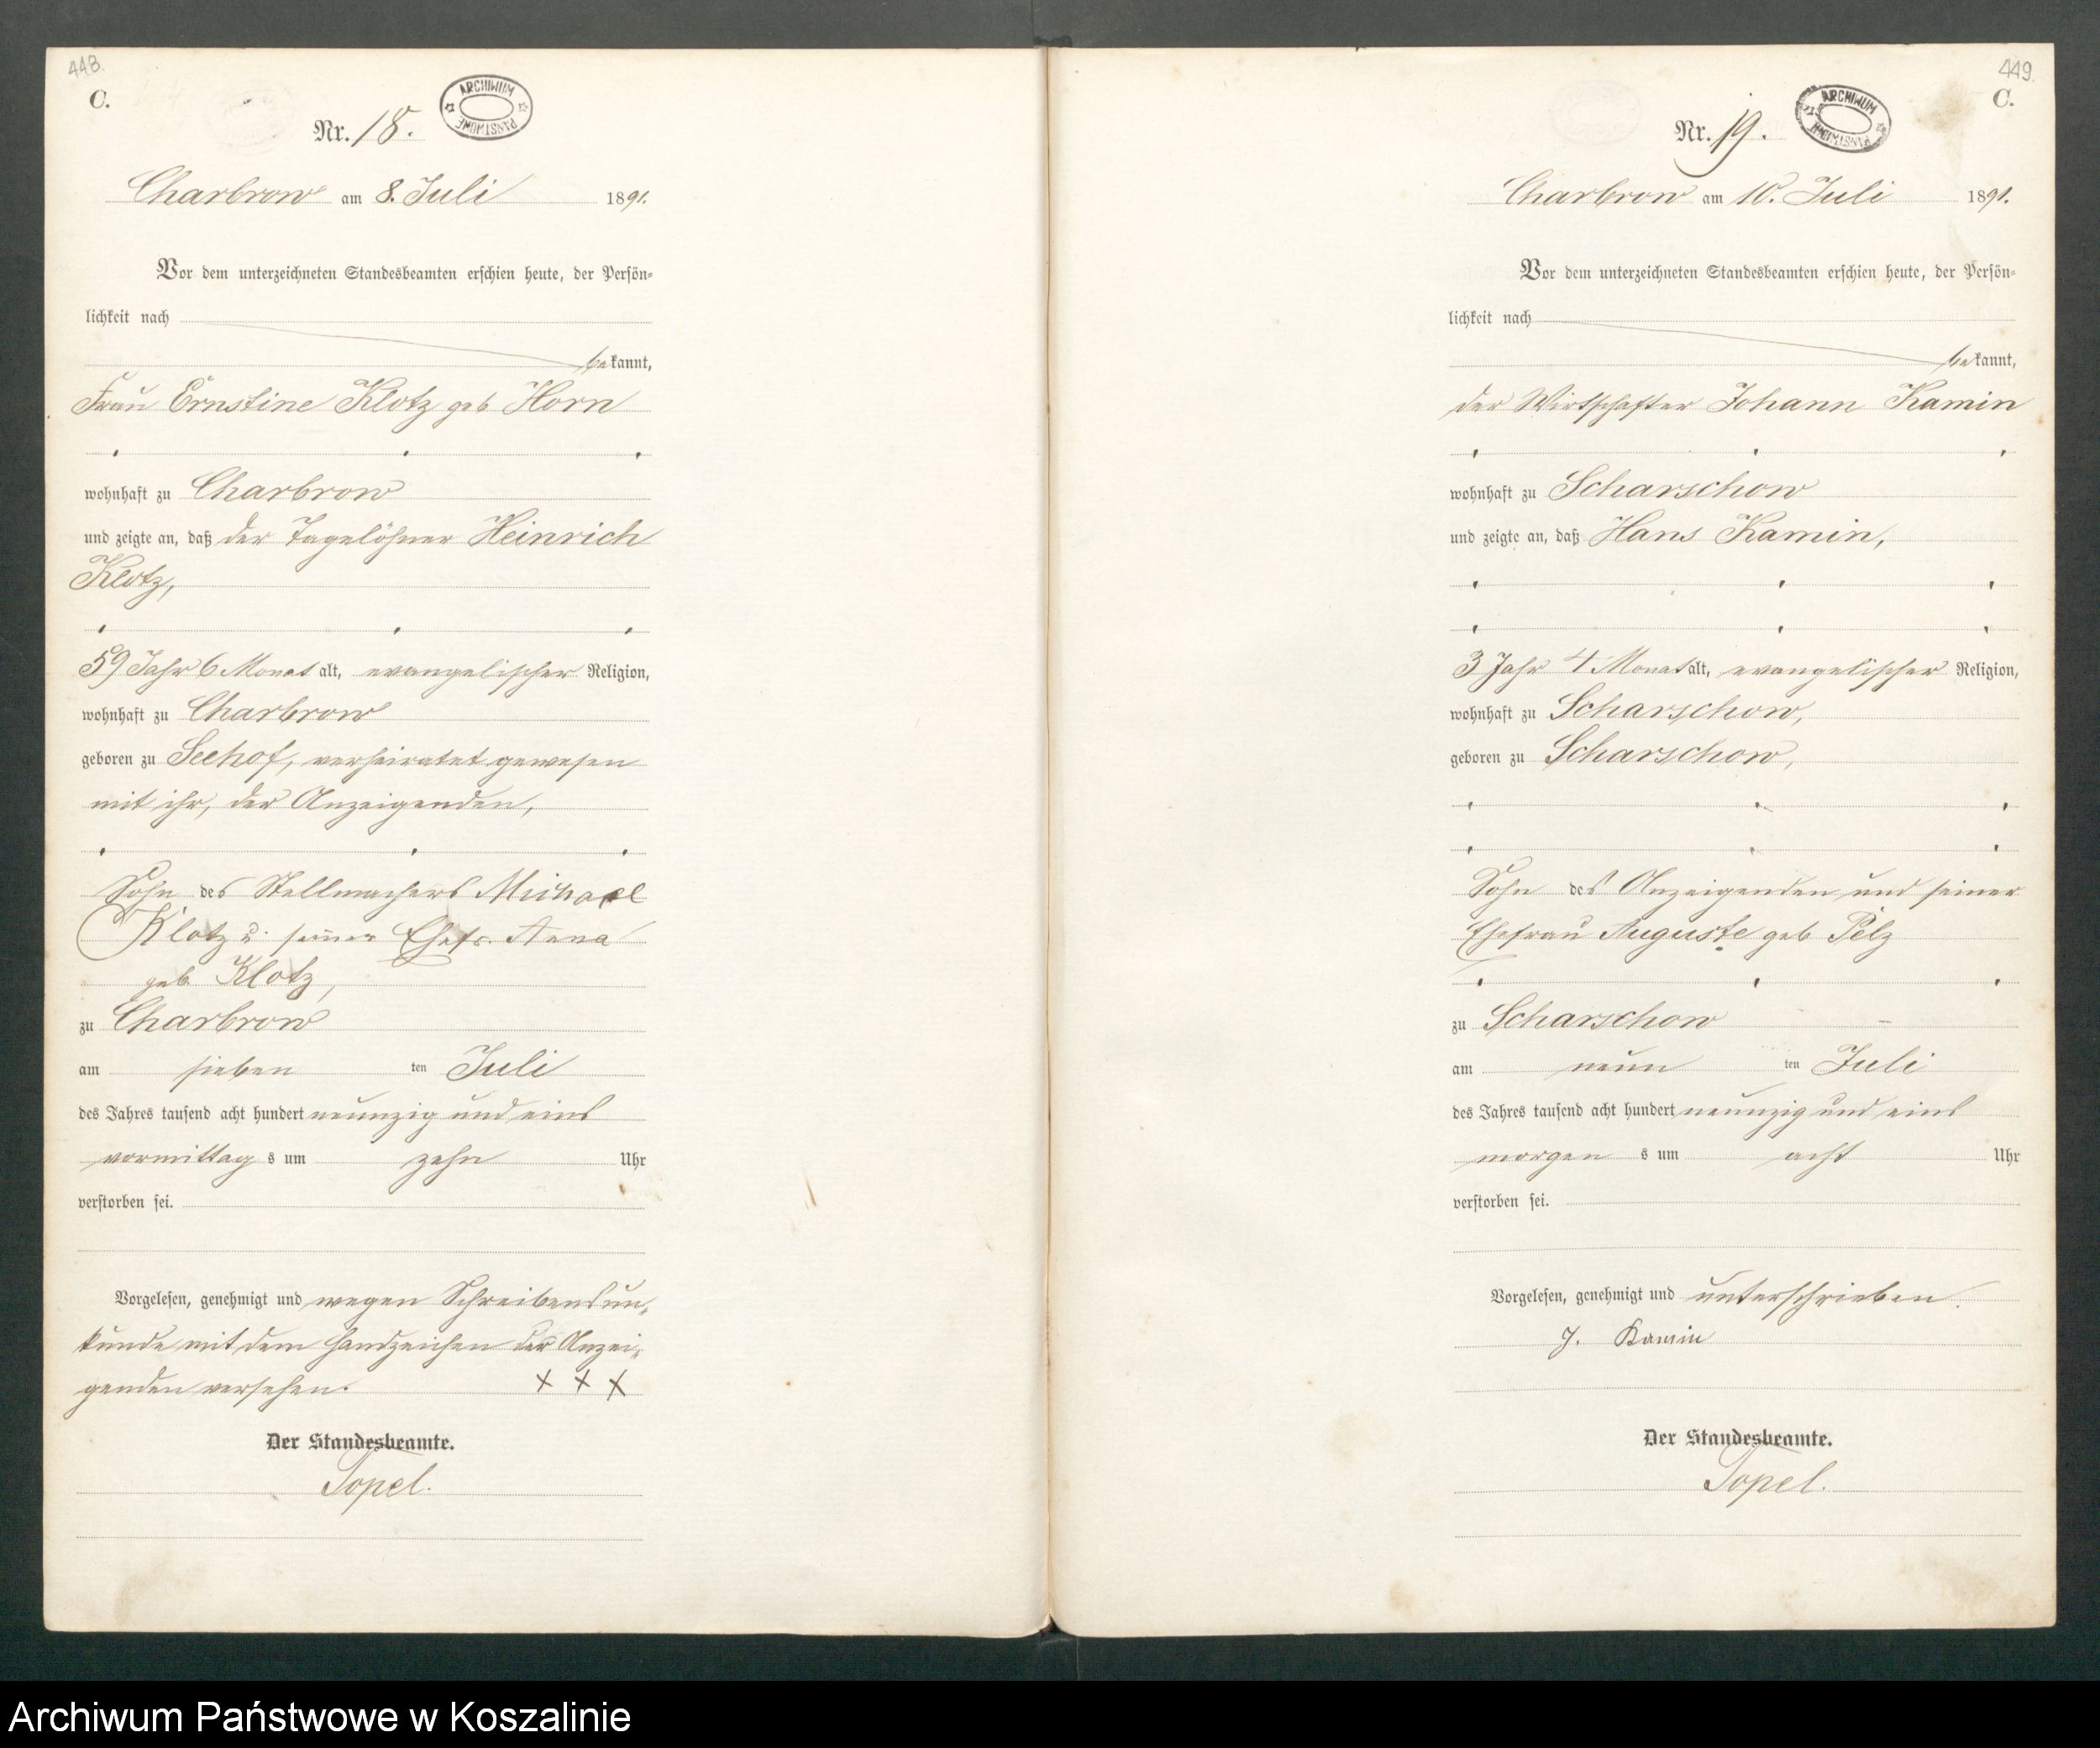 448.
C.
ARCHIWUM PAŃSTWOWE
Nr. 18.
Charbrow am 8. Juli 1891.
Vor dem unterzeichneten Standesbeamten erschien heute, der Persön-
lichkeit nach
bekannt,
Frau Ernstine Klotz geb Horn
wohnhaft zu Charbrow
und zeigte an, daß der Tagelöhner Heinrich
Klotz,
59 Jahr 6 Monat alt, evangelischer Religion,
wohnhaft zu Charbrow
geboren zu Seehof, verheiratet gewesen
mit ihr, der Anzeigenden,
Sohn des Stellmachers Michael
Klotz u. seiner Ehefr. Anna
geb Klotz,
zu Charbrow
am sieben ten Juli
des Jahres tausend acht hundert neunzig und eins
vormittag s um zehn Uhr
verstorben sei.
Vorgelesen, genehmigt und wegen Schreibensun-
kunde mit dem Handzeichen der Anzei-
genden versehen. + + +
Der Standesbeamte.
Topel.
449.
C.
ARCHIWUM PAŃSTWOWE
Nr. 19.
Charbrow am 10. Juli 1891.
Vor dem unterzeichneten Standesbeamten erschien heute, der Persön-
lichkeit nach
bekannt,
der Wirtschafter Johann Kamin
wohnhaft zu Scharschow
und zeigte an, daß Hans Kamin,
3 Jahr 4 Monat alt, evangelischer Religion,
wohnhaft zu Scharschow,
geboren zu Scharschow,
Sohn des Anzeigenden und seiner
Ehefrau Auguste geb Pelz
zu Scharschow
am neun ten Juli
des Jahres tausend acht hundert neunzig und eins
morgen s um acht Uhr
verstorben sei.
Vorgelesen, genehmigt und unterschrieben.
J. Kamin
Der Standesbeamte.
Topel.
Archiwum Państwowe w Koszalinie